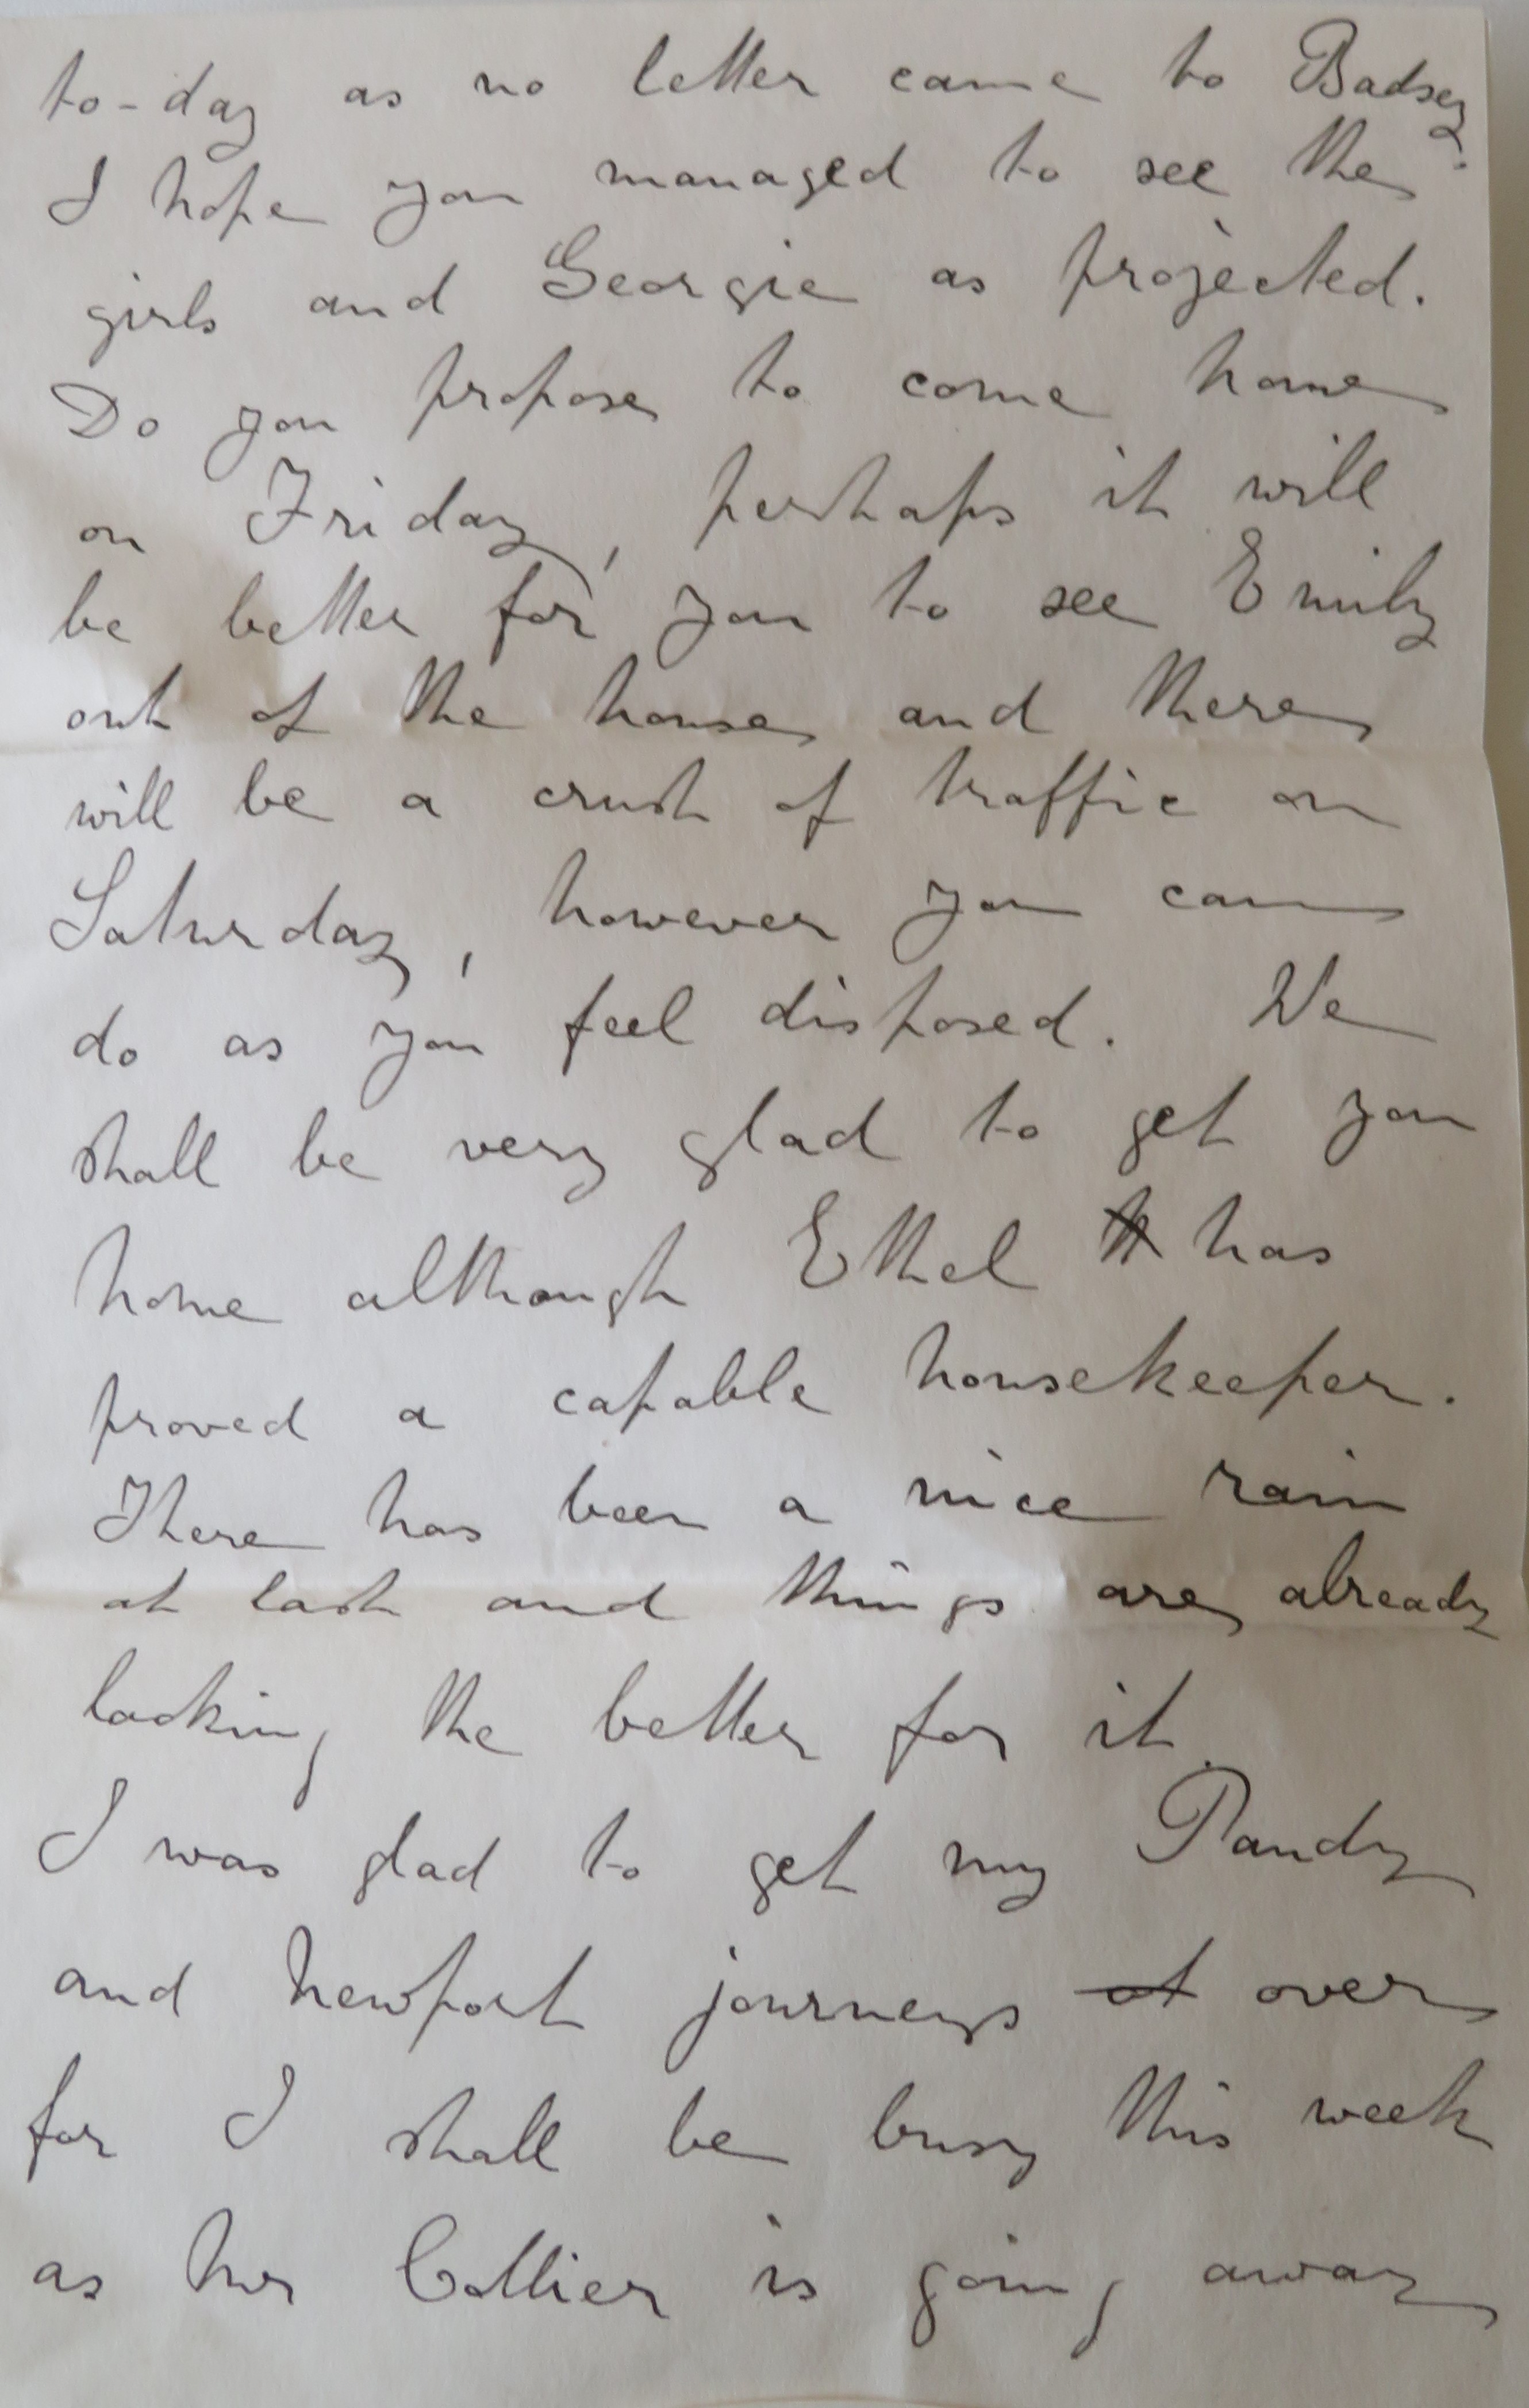 to-day as no letter came to Badsey.
I hope you managed to see the
girls and Georgie as projected.
Do you propose to come home
on Friday, perhaps it will
be better for you to see Emily
out of the house and there
will be a crush of traffic on
Saturday, however you can
do as you feel disposed. We
shall be very glad to get you
home although Ethel has
proved a capable housekeeper.
There has been a nice rain
at last and things are already
looking the better for it.
I was glad to get my Pandy
and Newport journeys at over
for I shall be busy this week
as Mr Collier is going away